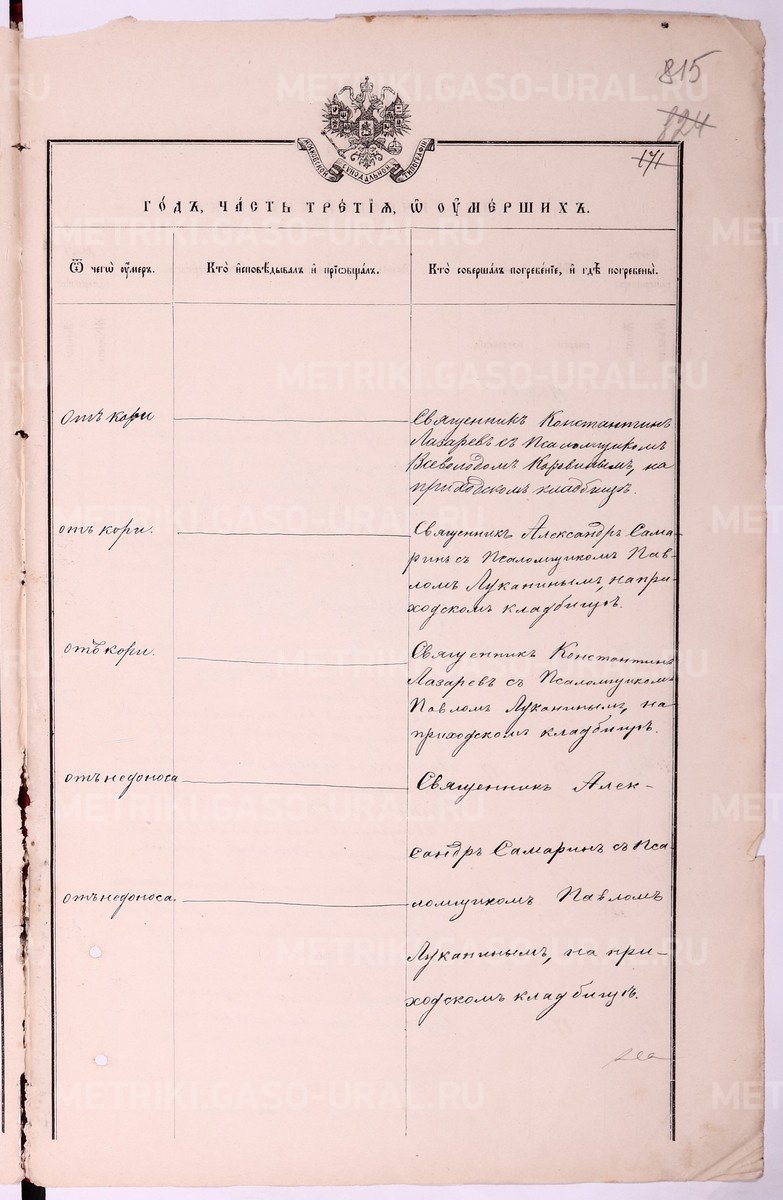 815
124
171
МОСКОВСКОЙ СѴНОДАЛЬНОЙ ТИПОГРАФІИ
ГО́ДЪ, ЧА́СТЬ ТРЕ́ТІѦ, Ѽ ОУ҆МЕ́РШИХЪ.
Ѿ чегѡ̀ оу҆́меръ.
Кто̀ и҆сповѣ́дывалъ и҆ прїѡбща́лъ.
Кто̀ соверша́лъ погребе́нїе, и҆ гдѣ̀ погребены̀.
Отъ кори
Священникъ Константинъ
Лазаревъ съ Псаломщикомъ
Всеволодомъ Коровинымъ, на
приходскомъ кладбищѣ.
отъ кори.
Священникъ Александръ Сама-
ринъ съ Псаломщикомъ Пав-
ломъ Луканинымъ, на при-
ходскомъ кладбищѣ.
отъ кори.
Священникъ Константинъ
Лазаревъ съ Псаломщикомъ
Павломъ Луканинымъ, на
приходскомъ кладбищѣ.
отъ недоноса
Священникъ Алек-
сандръ Самаринъ съ Пса-
отъ недоноса.
ломщикомъ Павломъ
Луканинымъ, на при-
ходскомъ кладбищѣ.
METRIKI.GASO-URAL.RU